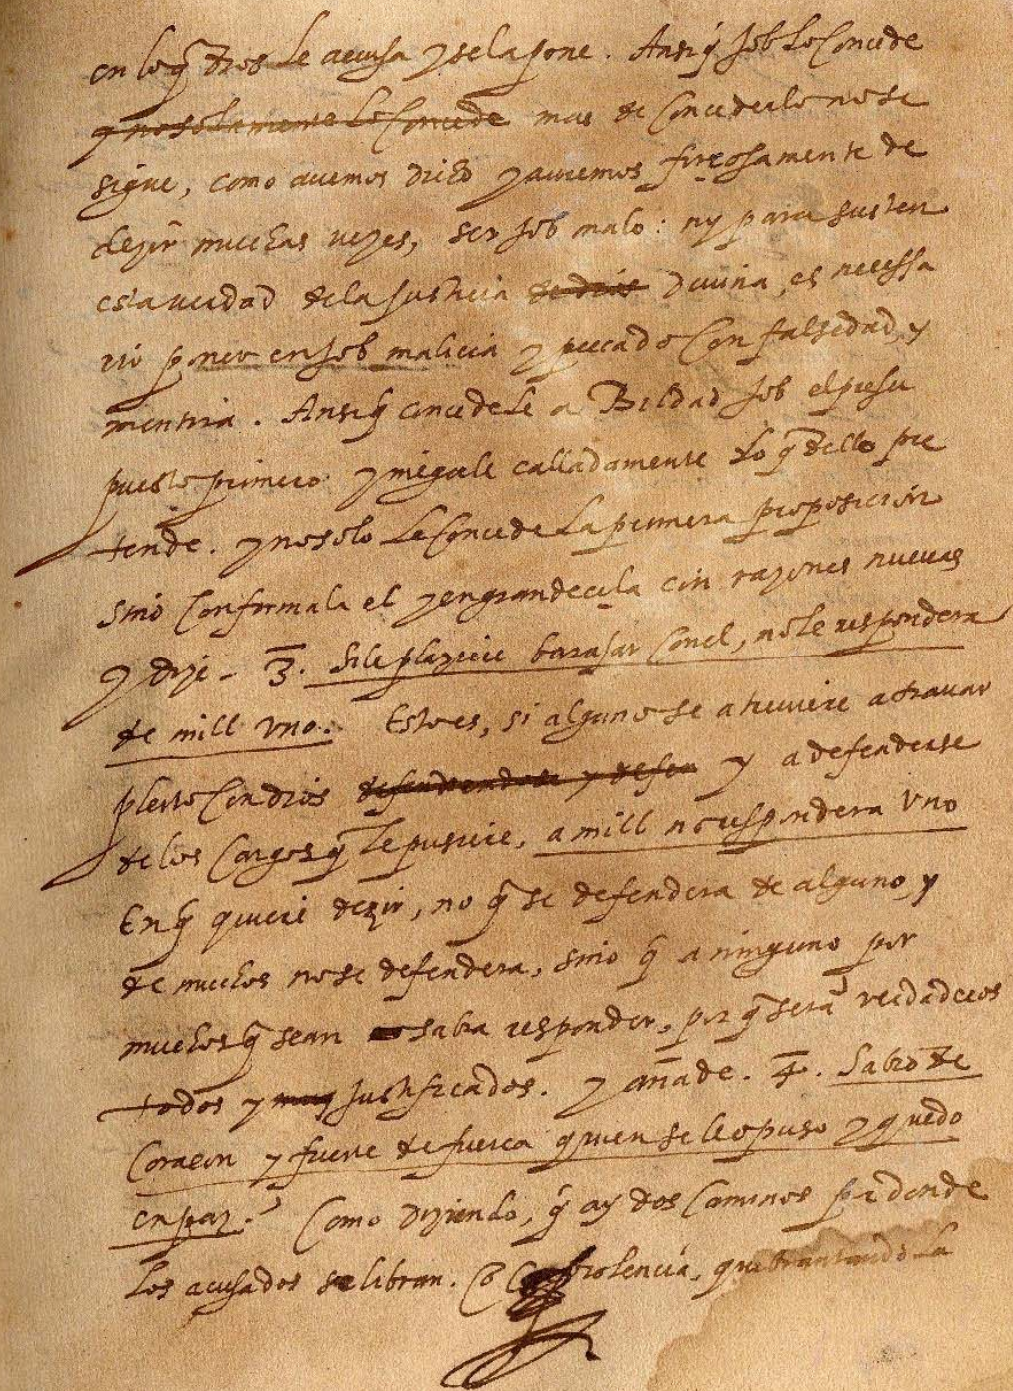 en loq̃ dios le acusa y se la pone. Ansi q̃ Job lo concede
y no solamente lo concede mas de concederlo no se
sigue, como auemos dicho y auremos forçosamente de
dezir muchas vezes, ser Job malo: ny para susten
esta uerdad de la justicia de dios diuina, es necessa
rio poner en Job malicia y peccado con falsedad, y
mentira. Ansi q̃ concedele a Bildad Job el presu
puesto primero y niegale calladamente lo q̃ dello pre
tende. y no solo le concede la primera proposicion
sino confirmala el y engrandecela con razones nueuas
y dize - 3. Si le plaziere barajar con el, no le respondera
de mill vno. Esto es, si alguno se atreuiere a trauar
pleito con dios defendiendose y defen y a defenderse
de los cargos q̃ le pusiere, a mill no respondera vno
En q̃ quiere dezir, no q̃ se defendera de alguno, y
de muchos no se defendera, sino q̃ a ninguno por
muchos q̃ sean no sabra responder, por q̃ seran verdaderos
todos y muy justificados. y añade. 4. Sabio de
coraçon y fuerte de fuerça quien se le opuso y quedo
en paz. Como diziendo, q̃ ay dos caminos por donde
los acusados se libran. O violencia, quebrantando la